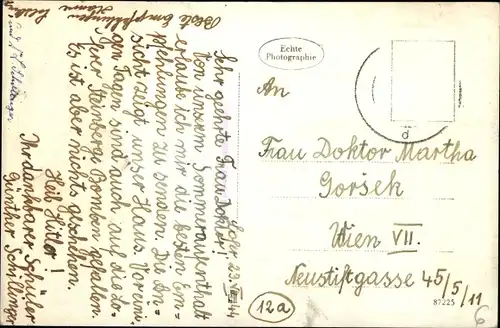 Lofer 23. VII. 44
Sehr geehrte Frau Doktor!
Von unserm Sommeraufenthalt
erlaub ich mir die besten Em-
pfehlungen zu senden. Die An-
sicht zeigt unser Haus. Vor eini-
gen Tagen sind auch auf die Lo-
ferer Steinberg. Bomben gefallen.
Es ist aber nichts geschehen.
Heil Hitler!
Ihr dankbarer Schüler
Günther
Beste Empfehlungen
Echte
Photographie
An
Frau Doktor Martha
Goršek
Wien VII.
Neustiftgasse 45/5/11
12a
87225
6
d